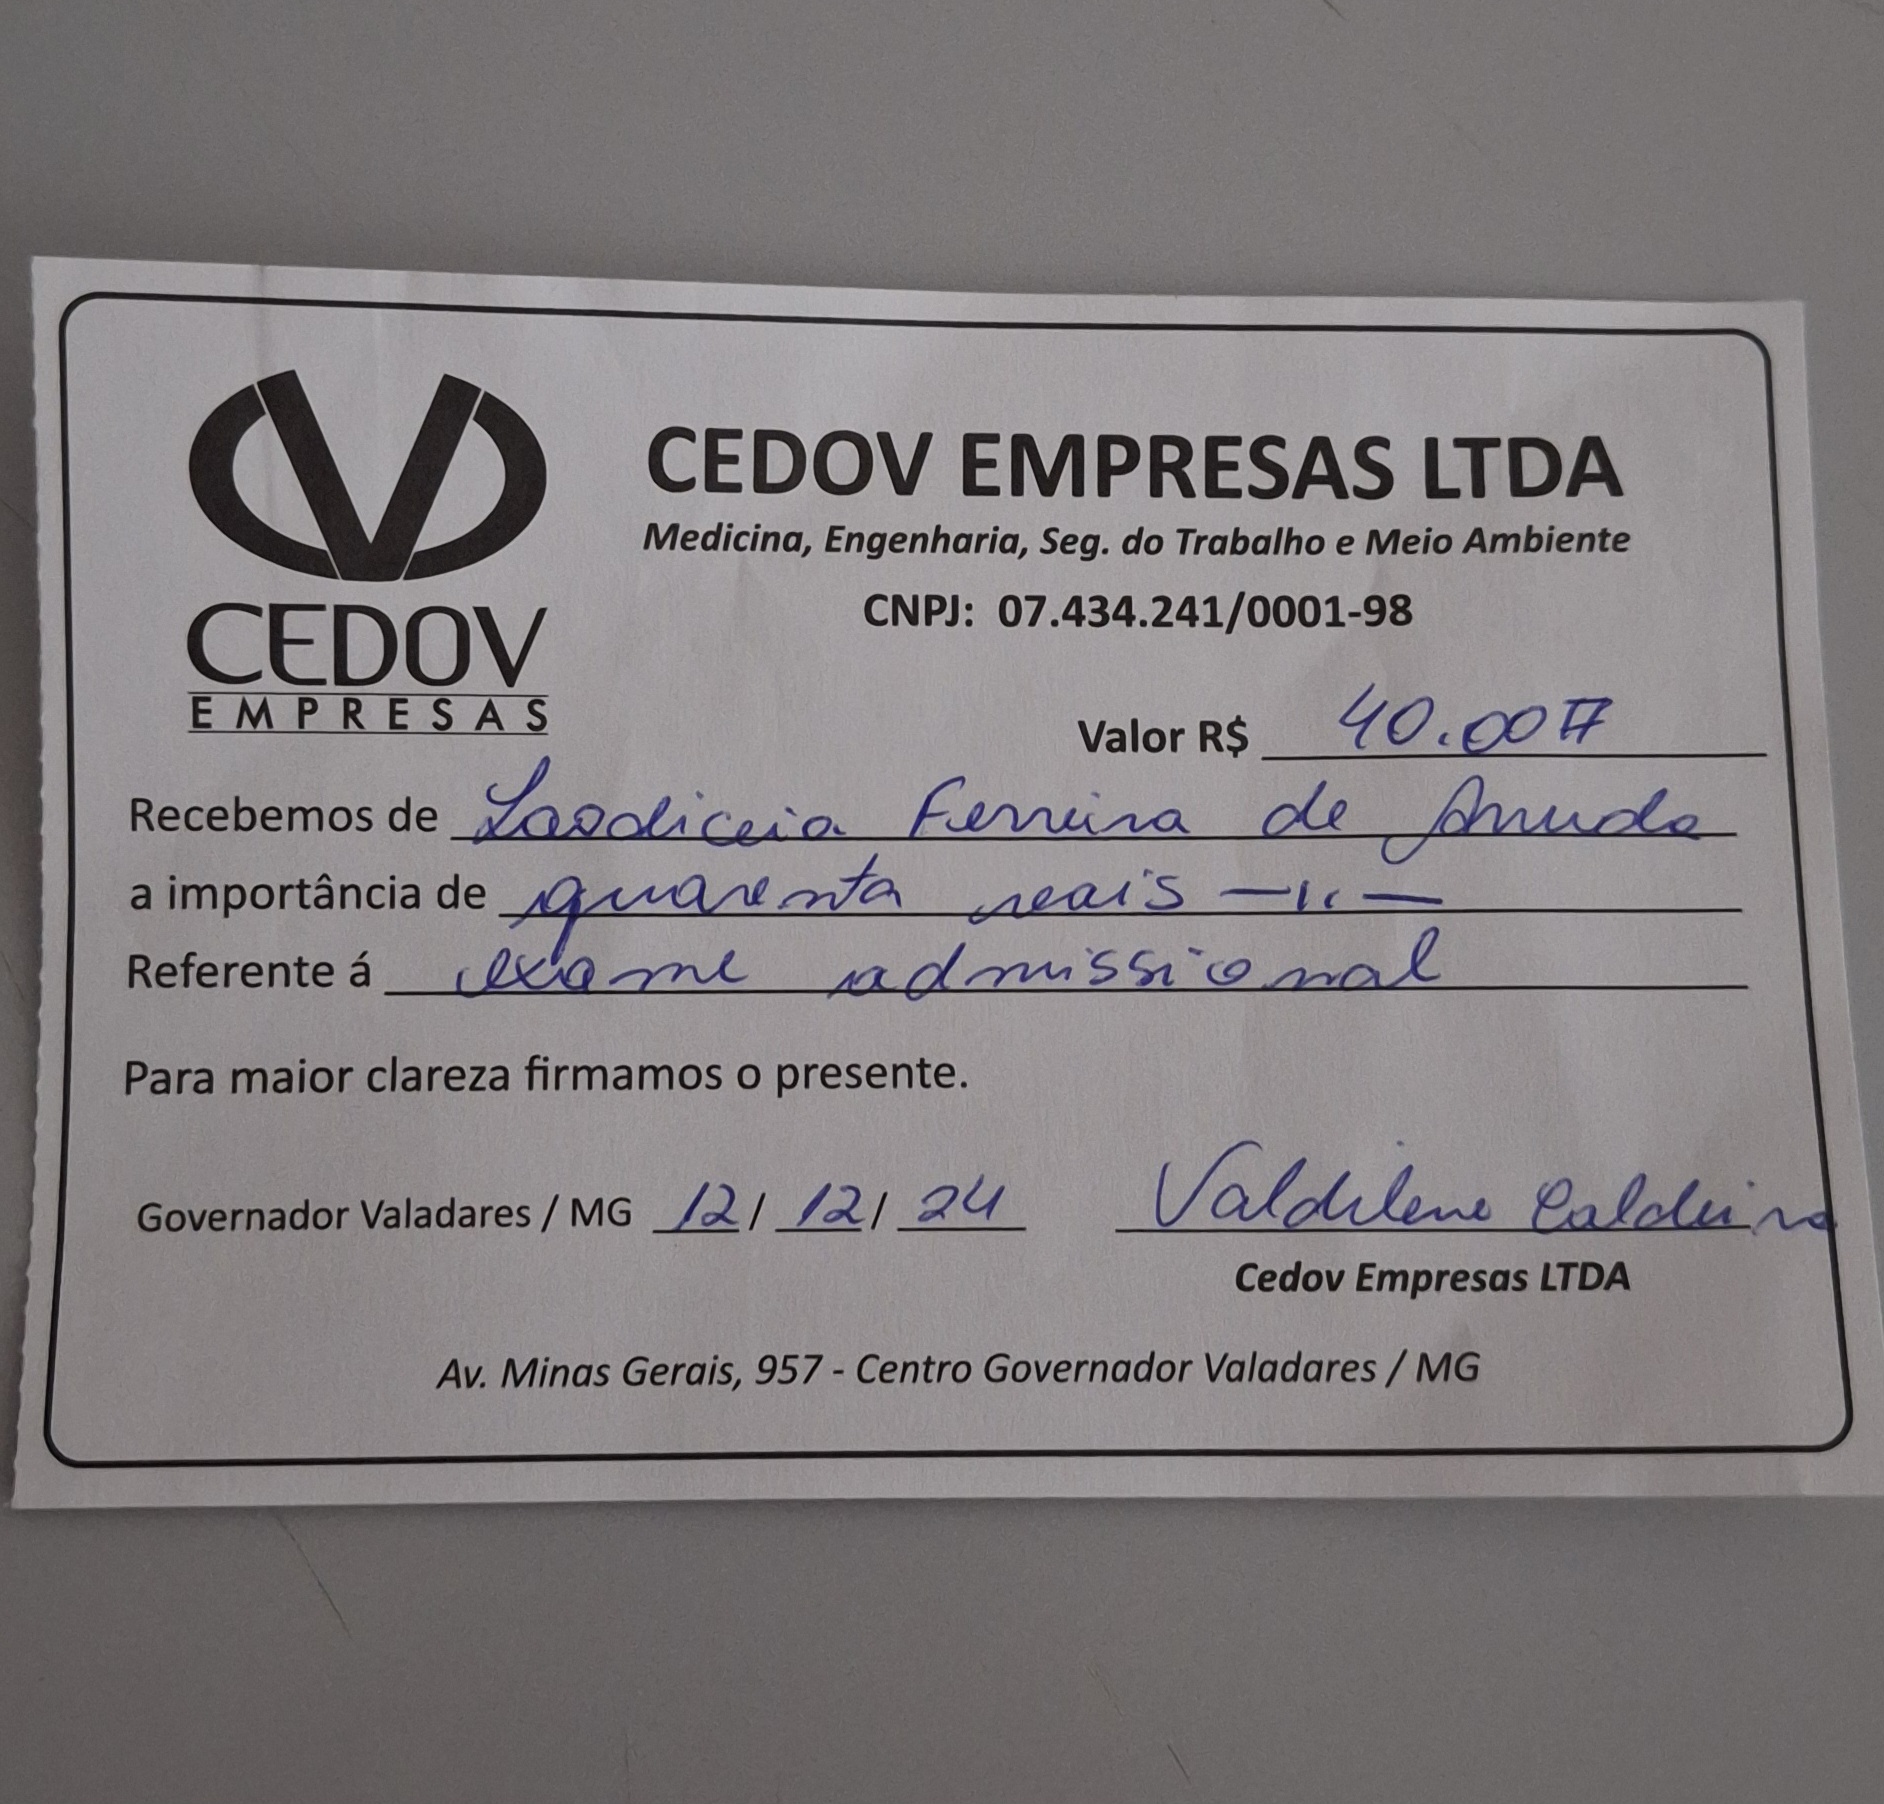 CEDOV
EMPRESAS
CEDOV EMPRESAS LTDA
Medicina, Engenharia, Seg. do Trabalho e Meio Ambiente
CNPJ: 07.434.241/0001-98
Valor R$ 40.00
Recebemos de Laodiceia Ferreira de Arruda
a importância de quarenta reais
Referente á exame admissional
Para maior clareza firmamos o presente.
Governador Valadares / MG 12/ 12/ 24 Valdilene Caldeira
Cedov Empresas LTDA
Av. Minas Gerais, 957 - Centro Governador Valadares / MG